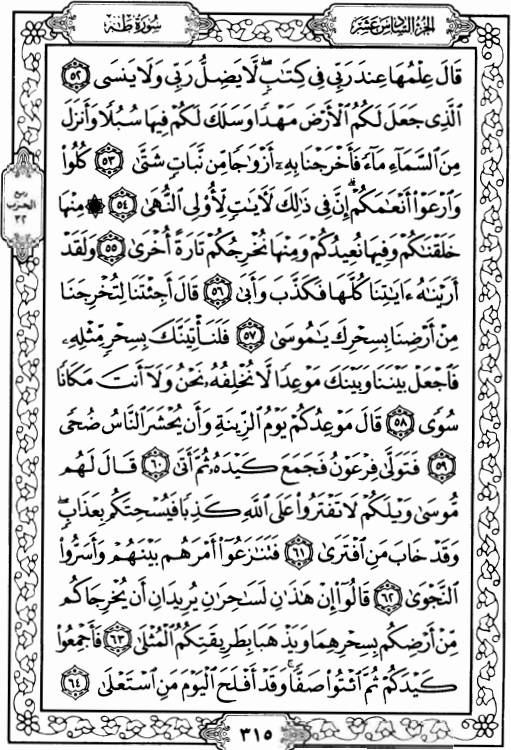 الجزء السادس عشر
سورة طه
قَالَ عِلْمُهَا عِندَ رَبِّى فِى كِتَٰبٍ ۖ لَّا يَضِلُّ رَبِّى وَلَا يَنسَى ٥٢
ٱلَّذِى جَعَلَ لَكُمُ ٱلْأَرْضَ مَهْدًا وَسَلَكَ لَكُمْ فِيهَا سُبُلًا وَأَنزَلَ
مِنَ ٱلسَّمَآءِ مَآءً فَأَخْرَجْنَا بِهِۦٓ أَزْوَٰجًا مِّن نَّبَاتٍ شَتَّىٰ ٥٣ كُلُوا۟
وَٱرْعَوْا۟ أَنْعَٰمَكُمْ ۗ إِنَّ فِى ذَٰلِكَ لَءَايَٰتٍ لِّأُو۟لِى ٱلنُّهَىٰ ٥٤ ۞ مِنْهَا
خَلَقْنَٰكُمْ وَفِيهَا نُعِيدُكُمْ وَمِنْهَا نُخْرِجُكُمْ تَارَةً أُخْرَىٰ ٥٥ وَلَقَدْ
أَرَيْنَٰهُ ءَايَٰتِنَا كُلَّهَا فَكَذَّبَ وَأَبَىٰ ٥٦ قَالَ أَجِئْتَنَا لِتُخْرِجَنَا
مِنْ أَرْضِنَا بِسِحْرِكَ يَٰمُوسَىٰ ٥٧ فَلَنَأْتِيَنَّكَ بِسِحْرٍ مِّثْلِهِۦ
فَٱجْعَلْ بَيْنَنَا وَبَيْنَكَ مَوْعِدًا لَّا نُخْلِفُهُۥ نَحْنُ وَلَآ أَنتَ مَكَانًا
سُوًى ٥٨ قَالَ مَوْعِدُكُمْ يَوْمُ ٱلزِّينَةِ وَأَن يُحْشَرَ ٱلنَّاسُ ضُحًى
٥٩ فَتَوَلَّىٰ فِرْعَوْنُ فَجَمَعَ كَيْدَهُۥ ثُمَّ أَتَىٰ ٦٠ قَالَ لَهُم
مُّوسَىٰ وَيْلَكُمْ لَا تَفْتَرُوا۟ عَلَى ٱللَّهِ كَذِبًا فَيُسْحِتَكُم بِعَذَابٍ ۖ
وَقَدْ خَابَ مَنِ ٱفْتَرَىٰ ٦١ فَتَنَٰزَعُوٓا۟ أَمْرَهُم بَيْنَهُمْ وَأَسَرُّوا۟
ٱلنَّجْوَىٰ ٦٢ قَالُوٓا۟ إِنْ هَٰذَٰنِ لَسَٰحِرَٰنِ يُرِيدَانِ أَن يُخْرِجَاكُم
مِّنْ أَرْضِكُم بِسِحْرِهِمَا وَيَذْهَبَا بِطَرِيقَتِكُمُ ٱلْمُثْلَىٰ ٦٣ فَأَجْمِعُوا۟
كَيْدَكُمْ ثُمَّ ٱئْتُوا۟ صَفًّا ۚ وَقَدْ أَفْلَحَ ٱلْيَوْمَ مَنِ ٱسْتَعْلَىٰ ٦٤
ربع
الحزب
٣٢
٣١٥